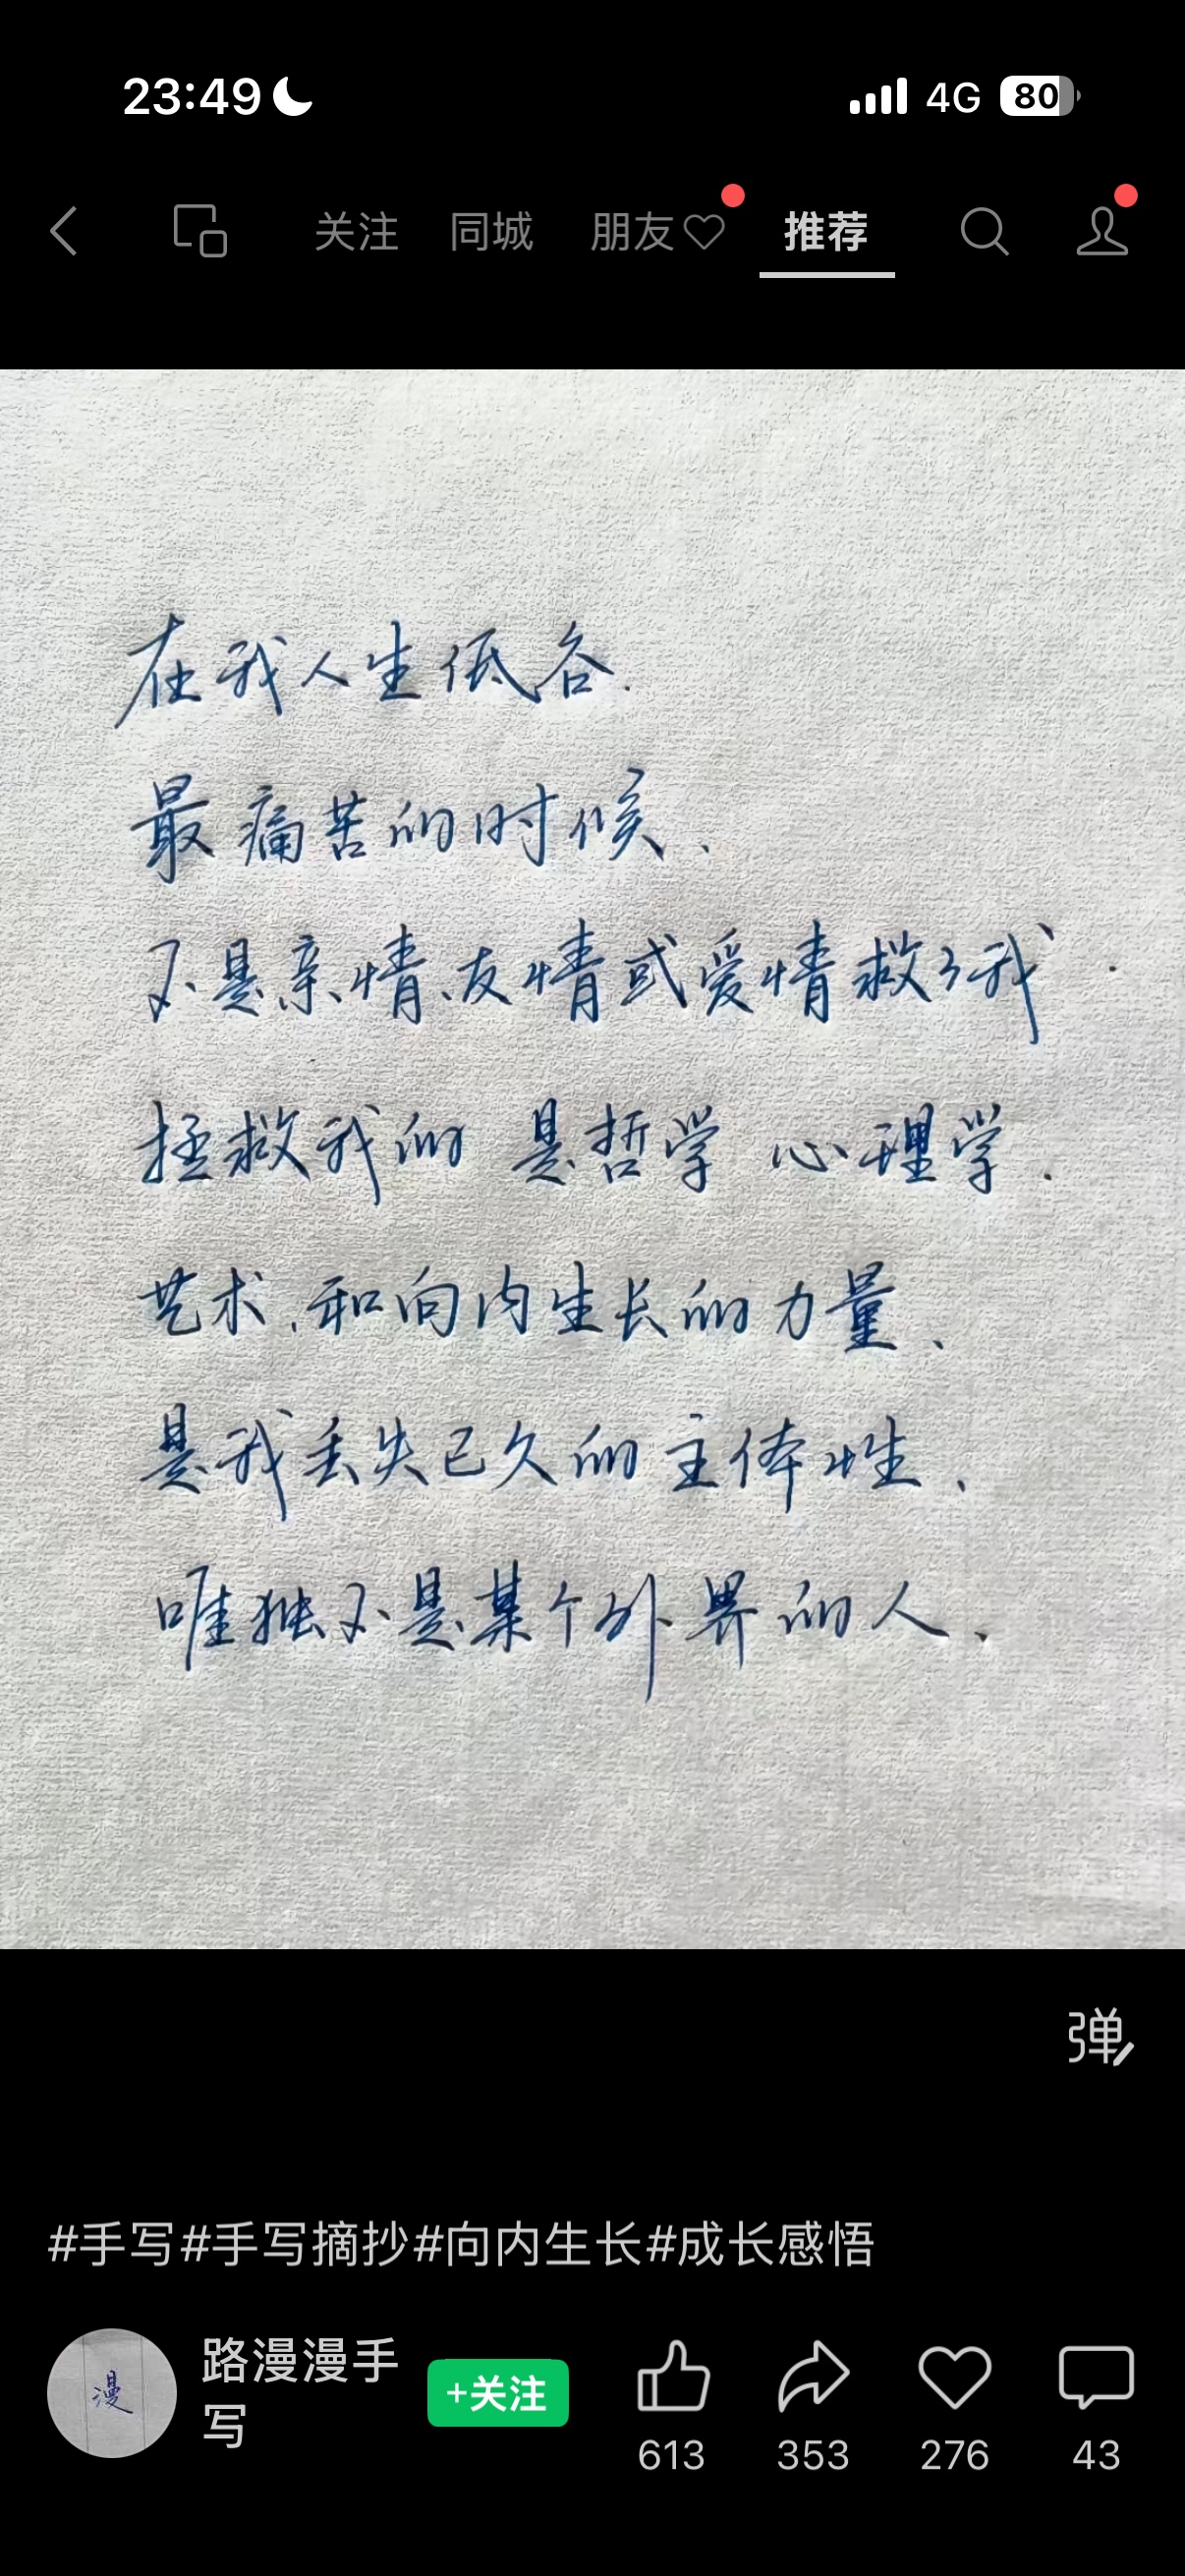 23:49 4G 80
关注 同城 朋友 推荐
在我人生低谷.
最痛苦的时候、
不是亲情、友情或爱情救了我.
拯救我的 是哲学 心理学.
艺术、和向内生长的力量、
是我丢失已久的主体性、
唯独不是某个外界的人、
弹
#手写#手写摘抄#向内生长#成长感悟
漫
路漫漫手
写
+关注
613 353 276 43